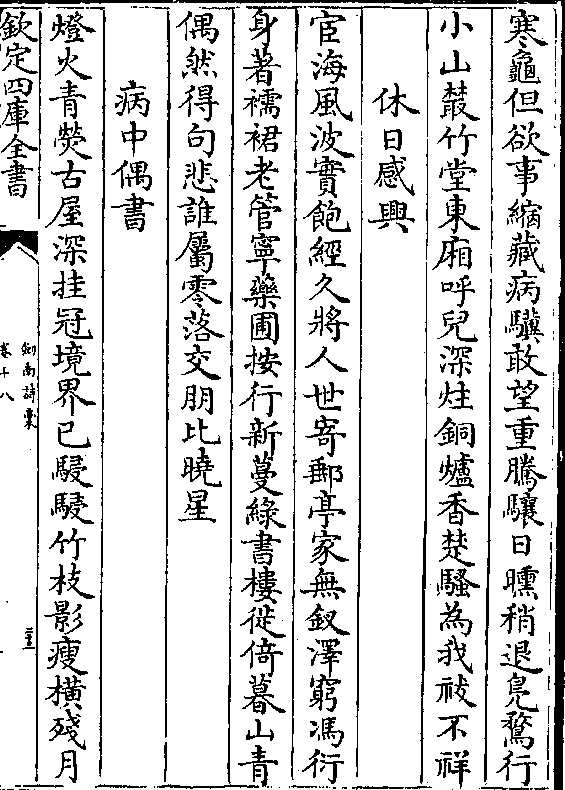 寒龜但欲事縮藏病驥敢望重騰驤日曛稍退鳧鶩行
小山叢竹堂東廂呼兒深炷銅爐香楚騷為我祓不祥
休日感興
宦海風波實飽經久將人世寄郵亭家無釵澤窮馮衍
身著襦裙老管寧藥圃按行新蔓綠書樓徙倚暮山青
偶然得句悲誰屬零落交朋比曉星
病中偶書
燈火青熒古屋深挂冠境界已駸駸竹枝影瘦橫殘月
欽定四庫全書
劍南詩稾
卷十八